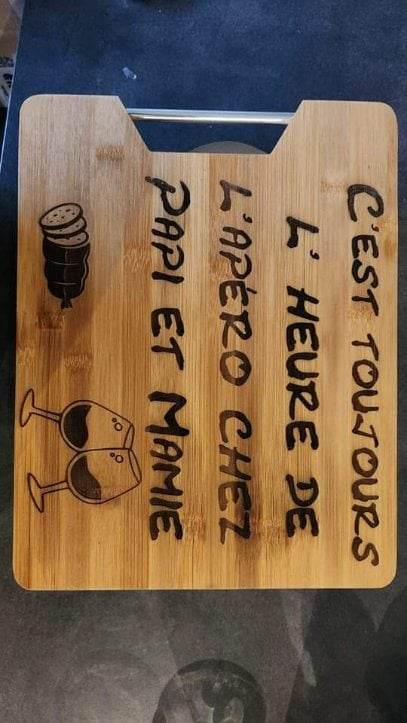 C'EST TOUJOURS
L'HEURE DE
L'APÉRO CHEZ
PAPI ET MAMIE